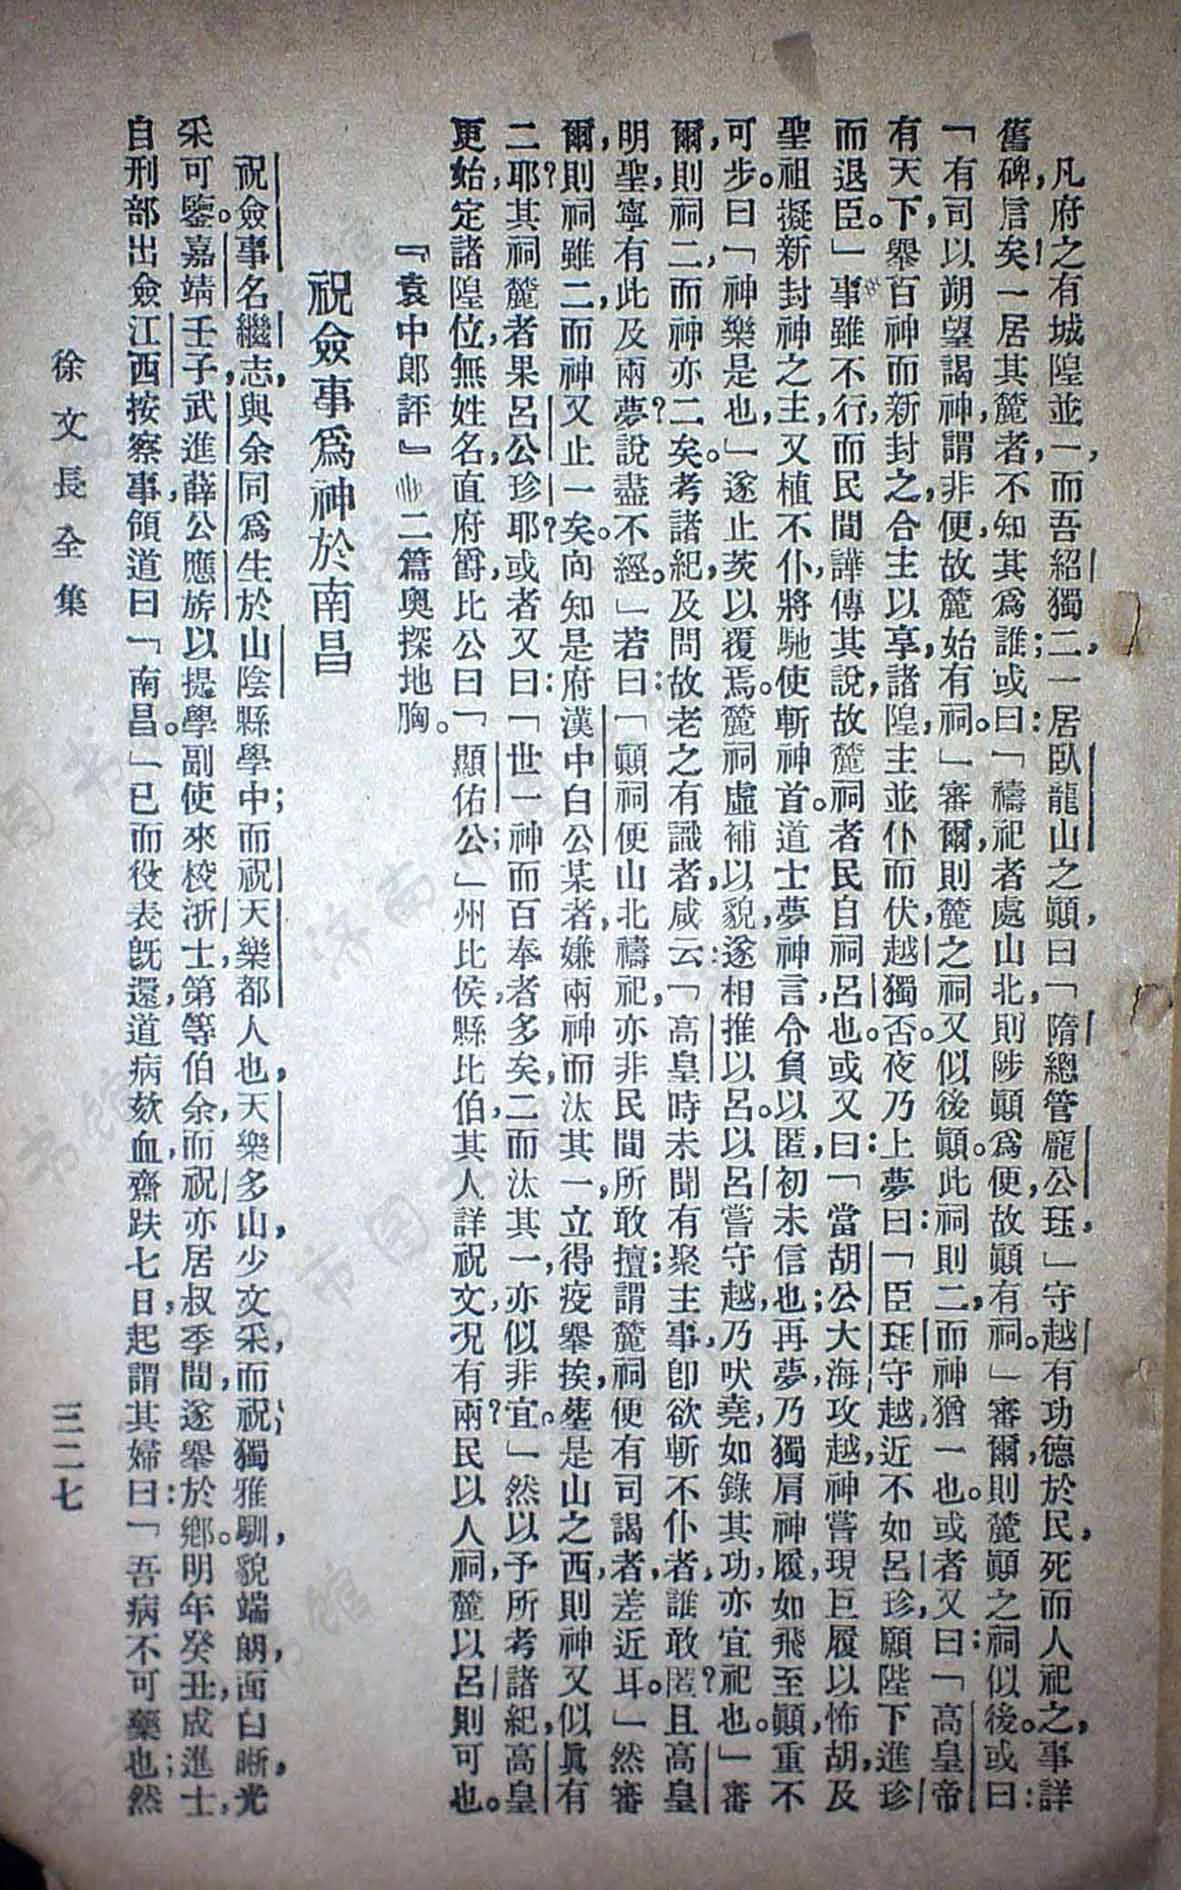 凡府之有城隍並一，而吾紹獨二，一居臥龍山之顚，曰「隋總管龐公珏，」守越有功德於民，死而人祀之，事詳
舊碑，信矣。一居其麓者，不知其爲誰；或曰：「禱祀者處山北，則陟顚爲便，故顚有祠。」審爾，則麓顚之祠似後。或曰：
「有司以朔望謁神，謂非便，故麓始有祠。」審爾，則麓之祠又似後顚。此祠則二，而神猶一也。或者又曰：「高皇帝
有天下，舉百神而新封之，合主以享，諸隍主並仆而伏，越獨否。夜乃上夢曰：「臣珏守越，近不如呂珍，願陛下進珍
而退臣。」事雖不行，而民間譁傳其說，故麓祠者民自祠呂也。或又曰：「當胡公大海攻越，神嘗現巨履以怖胡，及
聖祖擬新封神之主，又植不仆，將馳使斬神首。道士夢神言，令負以匿，初未信也；再夢，乃獨肩神履如飛至顚，重不
可步。曰：「神樂是也」遂止茨以覆焉。麓祠虛補以貌，遂相推以呂。以呂嘗守越，乃吠堯，如錄其功，亦宜祀也。」審
爾，則祠二，而神亦二矣。考諸紀，及問故老之有識者，咸云：「高皇時未聞有聚主事，卽欲斬不仆者，誰敢匿？且高皇
明聖，寧有此及兩夢？說盡不經。」若曰：「顚祠便山北禱祀，亦非民間所敢擅；謂麓祠便有司謁者，差近耳。」然審
爾，則祠雖二，而神又止一矣。向知是府漢中白公某者，嫌兩神而汰其一，立得疫，舉挨塟是山之西，則神又似眞有
二耶？其祠麓者果呂公珍耶？或者又曰：「世一神而百奉者多矣，二而汰其一，亦似非宜。」然以予所考諸紀，高皇
更始，定諸隍位，無姓名，直府爵比公，曰「顯佑公；」州比侯，縣比伯，其人詳祝文，况有兩？民以人祠，麓以呂則可也。
『袁中郎評』二篇奧探地胸。
祝僉事爲神於南昌
祝僉事名繼志，與余同爲生於山陰縣學中；而祝天樂都人也，天樂多山，少文采，而祝獨雅馴，貌端朗，面白晰，光
采可鑒。嘉靖壬子，武進薛公應旂以提學副使來校浙士，第等伯余，而祝亦居叔季間，遂舉於鄉。明年癸丑，成進士，
自刑部出僉江西按察事，領道曰「南昌。」已而役表旣還，道病欬血，齋趺七日，起謂其婦曰：「吾病不可藥也；然
徐文長全集
三二七